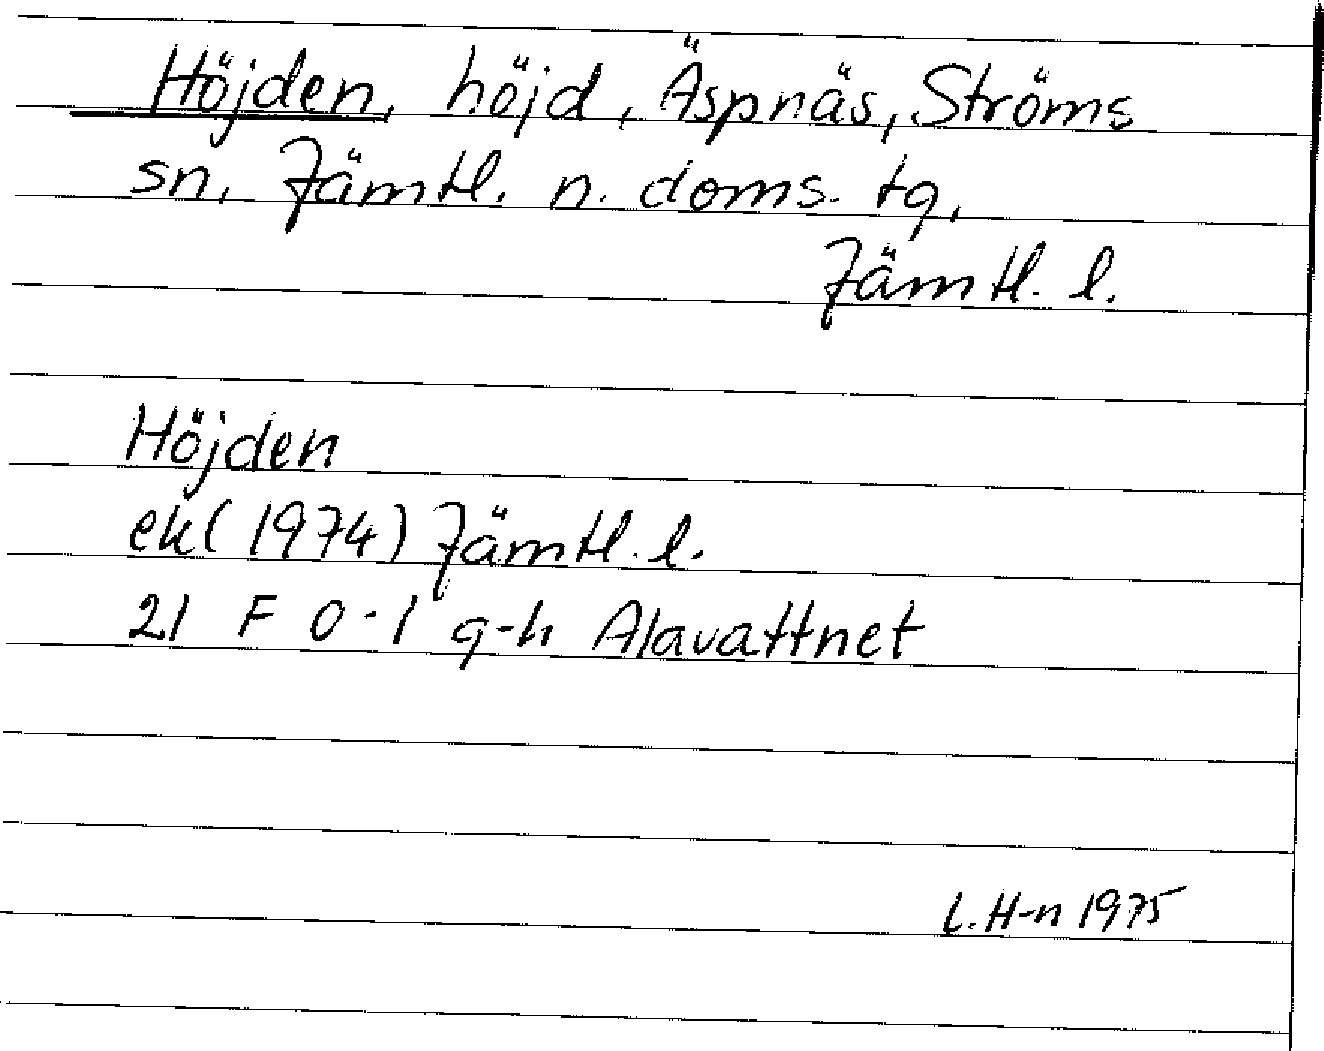 Höjden, höjd, Äspnäs, Ströms
sn, Jämtl. n. doms. tg,
Jämtl. l.
Höjden
ek (1974) Jämtl. l.
21 F 0-1 g-h Alavattnet
L. H-n 1975